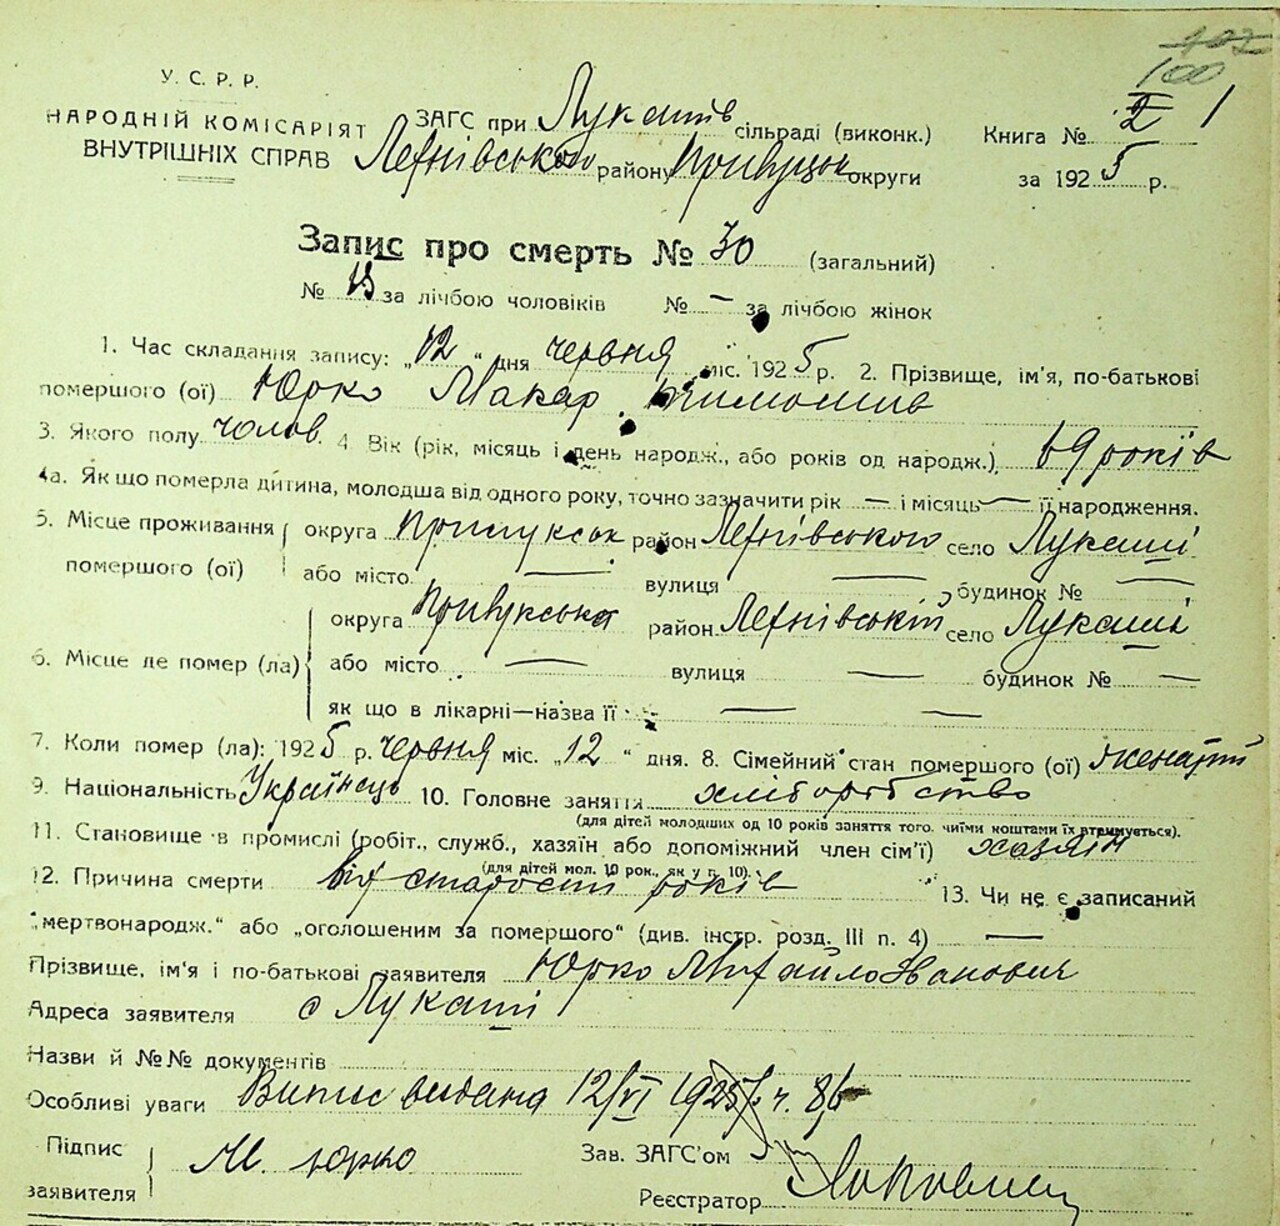 102
100
У. С. Р. Р.
НАРОДНІЙ КОМІСАРІЯТ
ВНУТРІШНІХ СПРАВ
ЗАГС при Лукашів сільраді (виконк.)
району Прилуцьк округи
Книга № 1
за 1925 р.
Запис про смерть № 30 (загальний)
№ за лічбою чоловіків № — за лічбою жінок
1. Час складання запису: „12“ дня червня міс. 1925 р. 2. Прізвище, ім'я, по-батькові
помершого (ої) Юрко Макар Тимошив
3. Якого полу чолов. 4. Вік (рік, місяць і день народж., або років од народж.) 69 років
4а. Як що померла дитина, молодша від одного року, точно зазначити рік — і місяць — її народження.
5. Місце проживання помершого (ої) округа Прилукськ район село Лукаші
або місто — вулиця — будинок № —
6. Місце де помер (ла) округа Прилукська район село Лукаші
або місто — вулиця — будинок № —
як що в лікарні—назва її — —
7. Коли помер (ла): 1925 р. червня міс. „12“ дня. 8. Сімейний стан помершого (ої) женатий
9. Національність Українець 10. Головне заняття хліборобство
(для дітей молодших од 10 років заняття того, чиїми коштами їх втримується).
11. Становище в промислі (робіт., служб., хазяїн або допоміжний член сім'ї) хазяїн
(для дітей мол. 10 рок., як у п. 10).
12. Причина смерти від старости років 13. Чи не є записаний
„мертвонародж.“ або „оголошеним за помершого“ (див. інстр. розд. III п. 4) —
Прізвище, ім'я і по-батькові заявителя Юрко Михайло Іванович
Адреса заявителя с Лукаші
Назви й №№ документів
Особливі уваги Випис видана 12/VI 1925
Підпис заявителя М. Юрко
Зав. ЗАГС'ом
Реєстратор